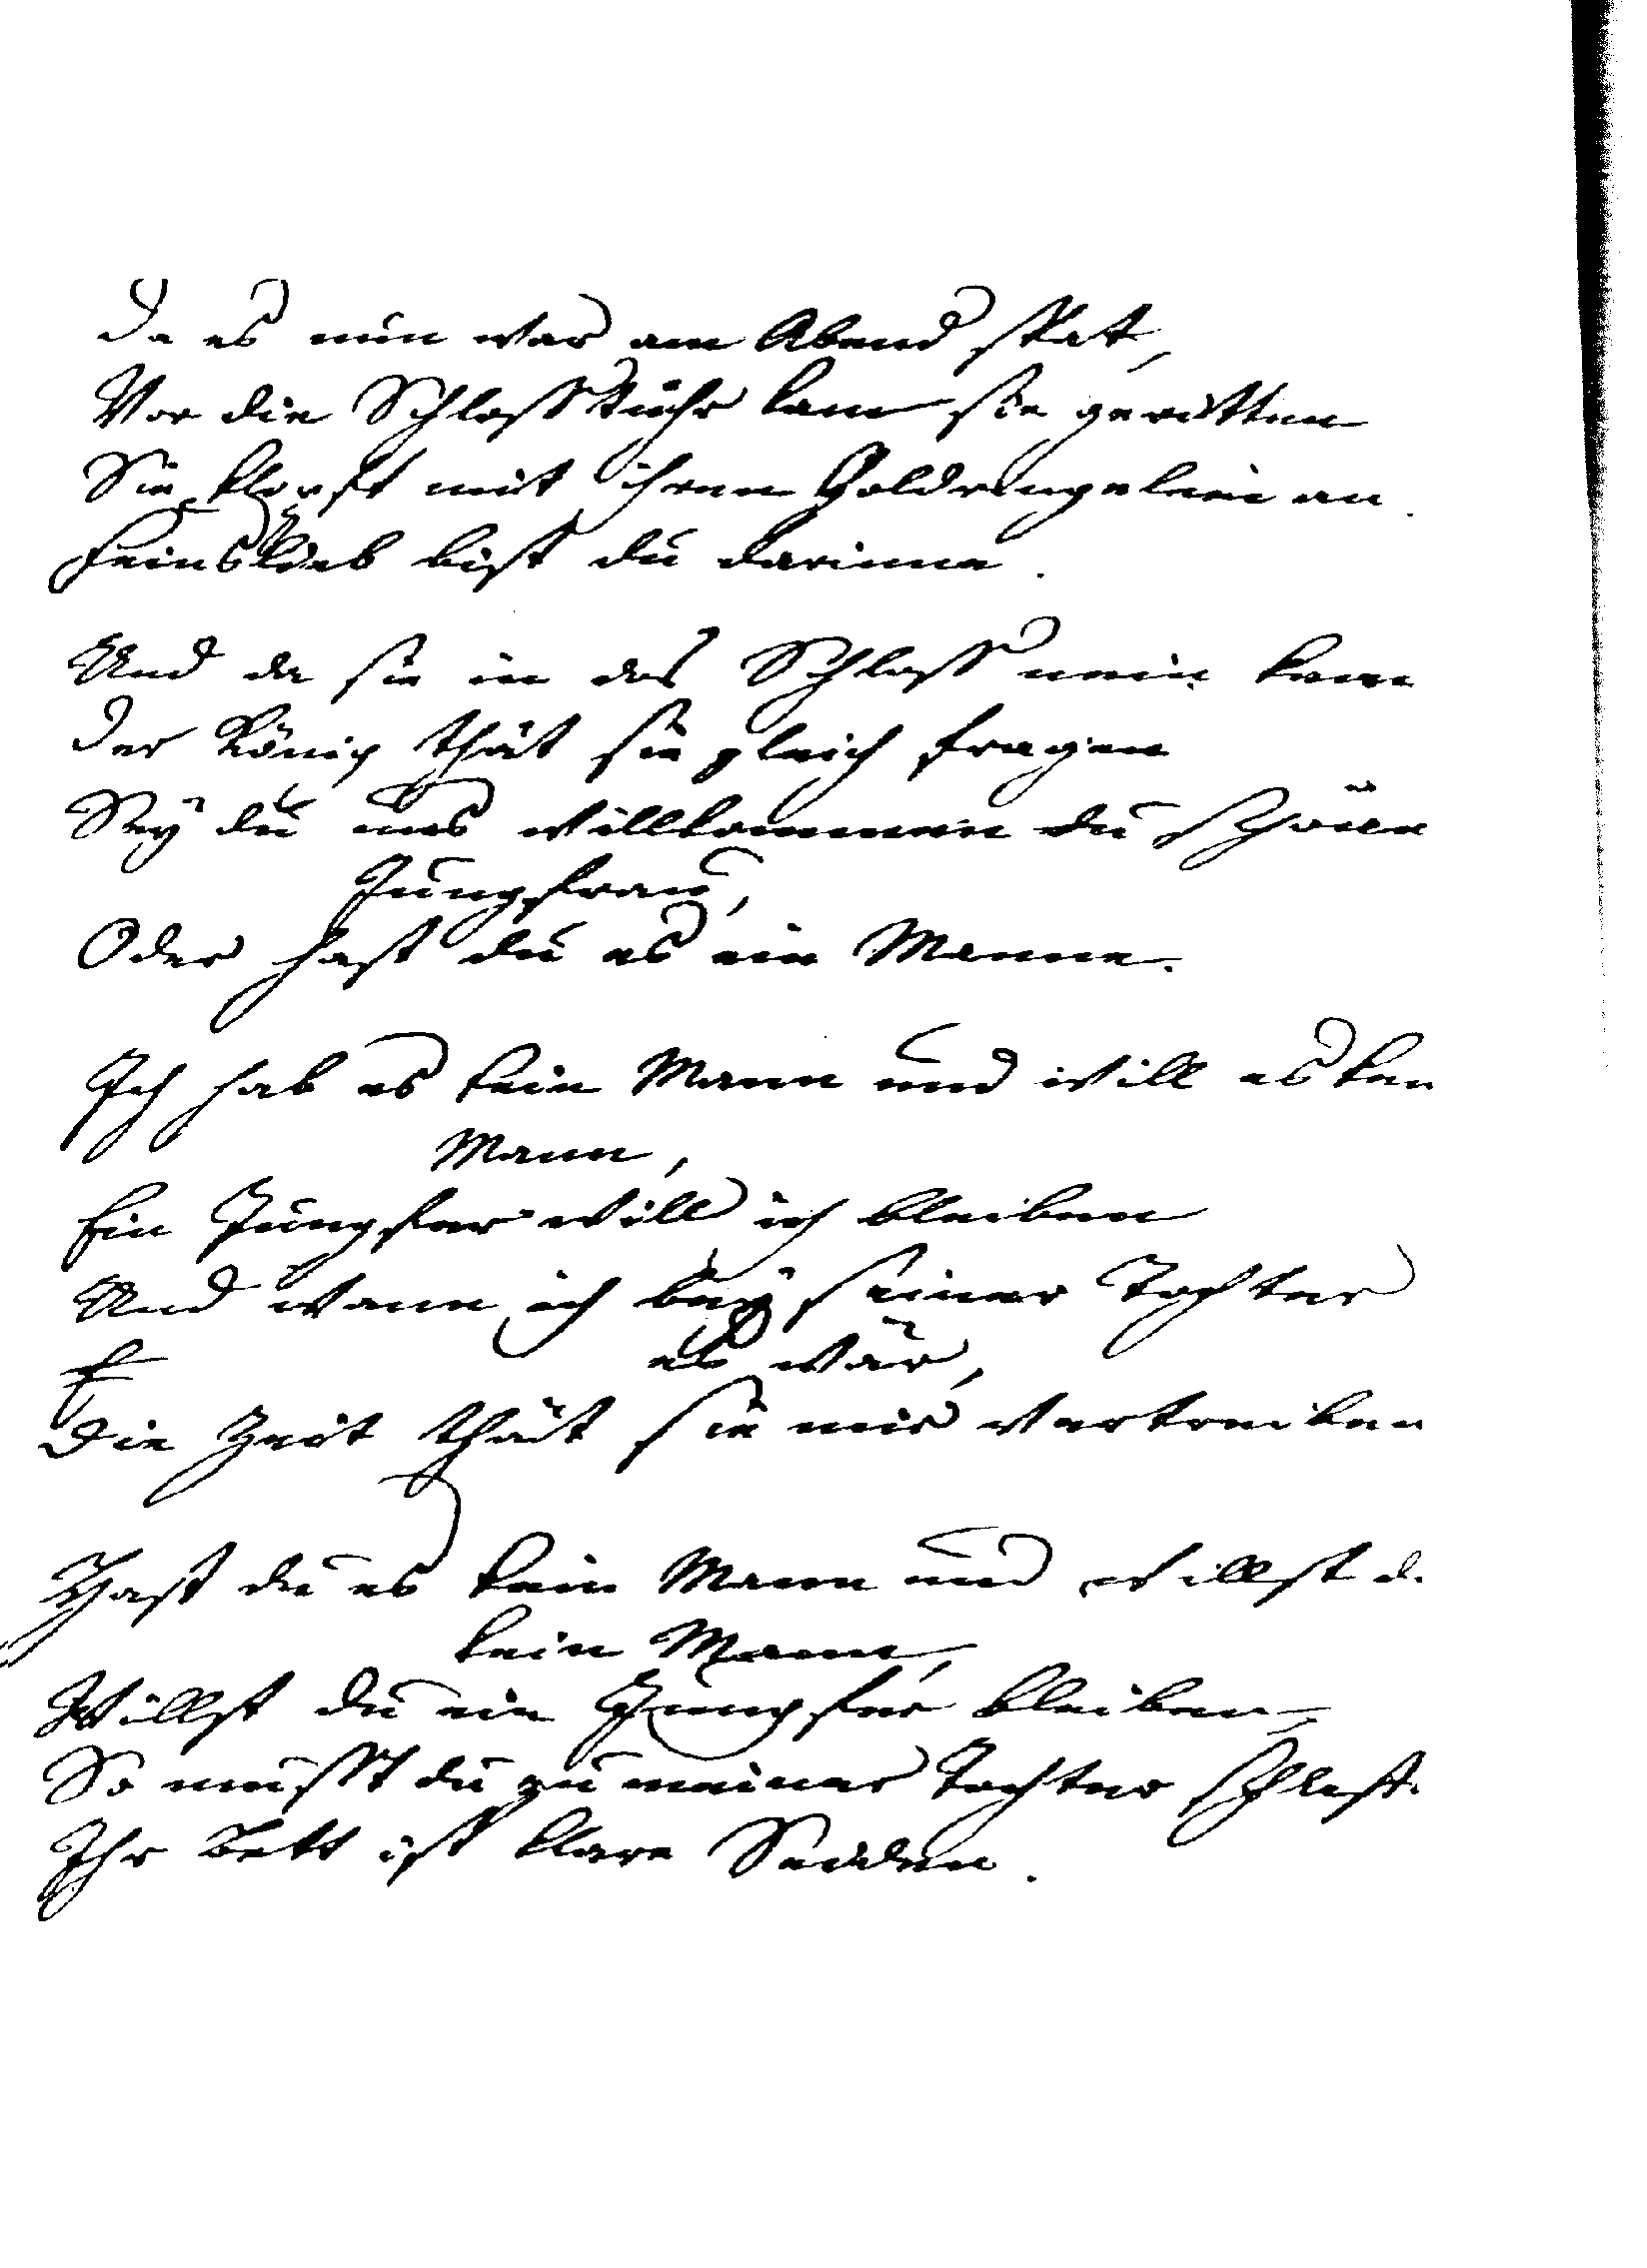 Da es nun war am Abend spat,
Vor die Schlosstühr kam sie geritten
Sie klopft mit ihrem Goldringelein an.
Feinslieb bist du darinne.
Und da sie in das Schloss nein kam
Der König thät sie gleich fragen
Sey du uns willkommen du schöne
Jungfrau,
Oder hast du es ein Manne.
Ich hab es kein Mann und will es ken
Mann,
Ein Jungfer will ich bleiben
Und wann ich bey seiner Tochter
es wär,
Die Zeit thät sie mir vertreiben
Hast du es kein Mann und willst d.
kein Mann,
Willst du ein Jungfer bleiben,
So musst du zu meiner Tochter
Ihr Bett ist klare Seiden.